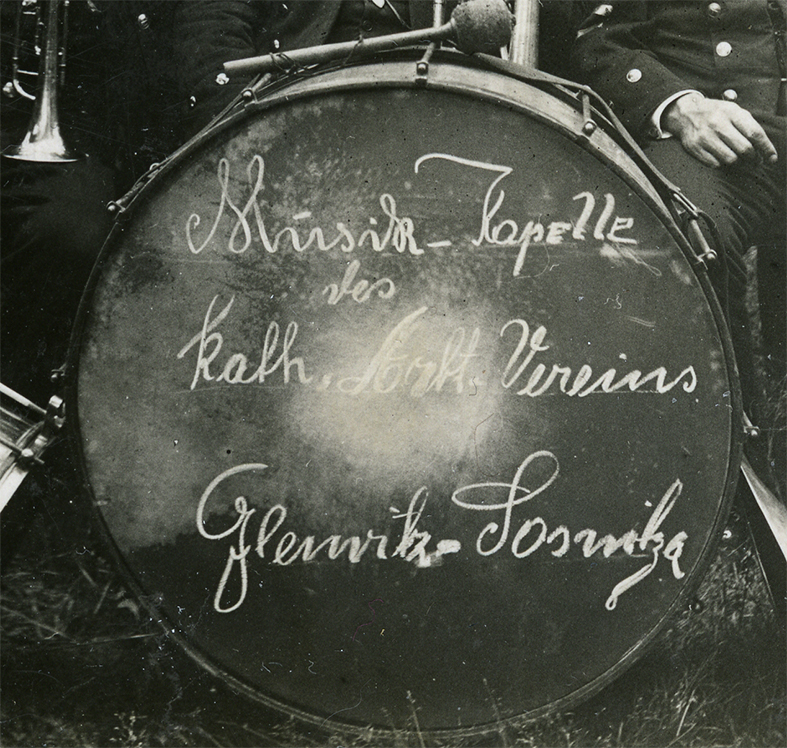 Musik-Kapelle
des
Kath. Arbt. Vereins
Gleiwitz-Sosnitza